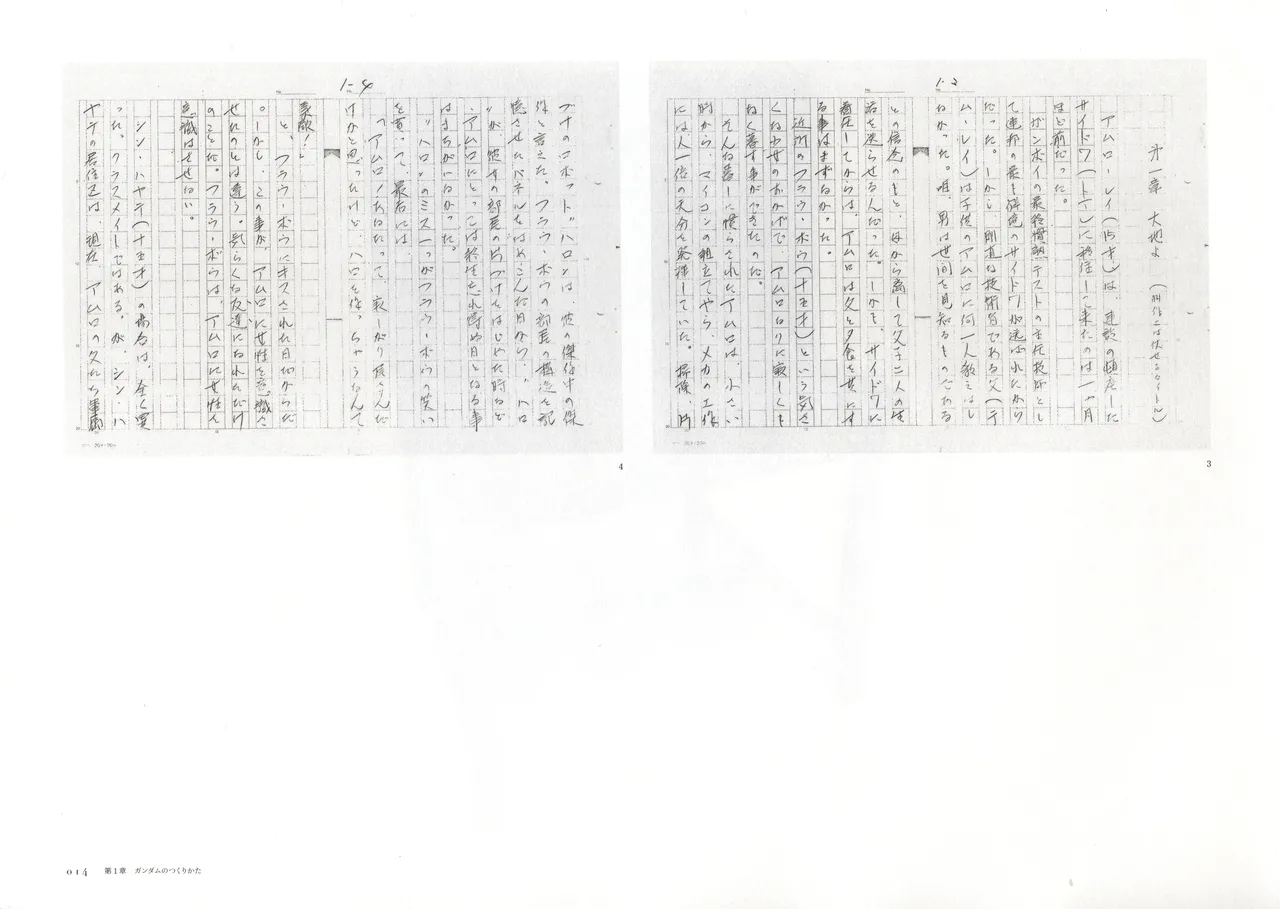 1-2
第一章　大地よ　(副作には伏せるタイトル)
アムロ・レイ(15才)は、建設の頓座した
サイド7(トナレ)に移住して来たのは一ヶ月
ほど前だった。
ガンボイの最終慣熟テストの主任技師とし
て連邦の最も辟遠のサイド7が選ばれたから
だった。しかし、剛直な技術者である父(テ
ム・レイ)は子供のアムロに何一人教えはし
なかった。唯、男は世間を見知るものである
との信念のもと、母から離して父子二人の生
活を送らせるんだった。しかも、サイド7に
着任してからは、アムロは父と夕食を共にす
る事はまずなかった。
近所のフラウ・ボウ(十五才)という気さ
くな少女のおかげで、アムロなりに寂しくも
なく暮す事ができたのだ。
そんな暮しに慣らされたアムロは、小さい
時から、マイコンの組立てやら、メカの工作
には、人一倍の天分を発揮していた。掃除、門
3
1-4
ブナのロボット〝ハロ〟は、彼の傑作中の傑
作と言えた。フラウ・ボウの部屋の構造を記
憶させたパネルをはめこんだ日から、〝ハロ
〟が、彼女の部屋の片づけをはじめた時など
、アムロにとっては終生忘れ得ぬ日となる事
はまちがいなかった。
〝ハロ〟のミス一つがフラウ・ボウの笑い
を買って、最后には
「アムロ！あなたって、寂しがり屋さんだ
けかと思ったけど、ハロを作っちゃうなんて
素敵！」
と、フラウ・ボウにキスされた日からだ
。しかし、この事が、アムロに女性を意識さ
せたのとは違う。気らくな友達になれただけ
のことだ。フラウ・ボウは、アムロに女性を
意識はさせない。
シン・ハヤテ(十五才)の場合は、全く異
った。クラスメイトではある。が、シン・ハ
ヤテの居住区は、現在、アムロの父たち軍属
4
014　第1章　ガンダムのつくりかた